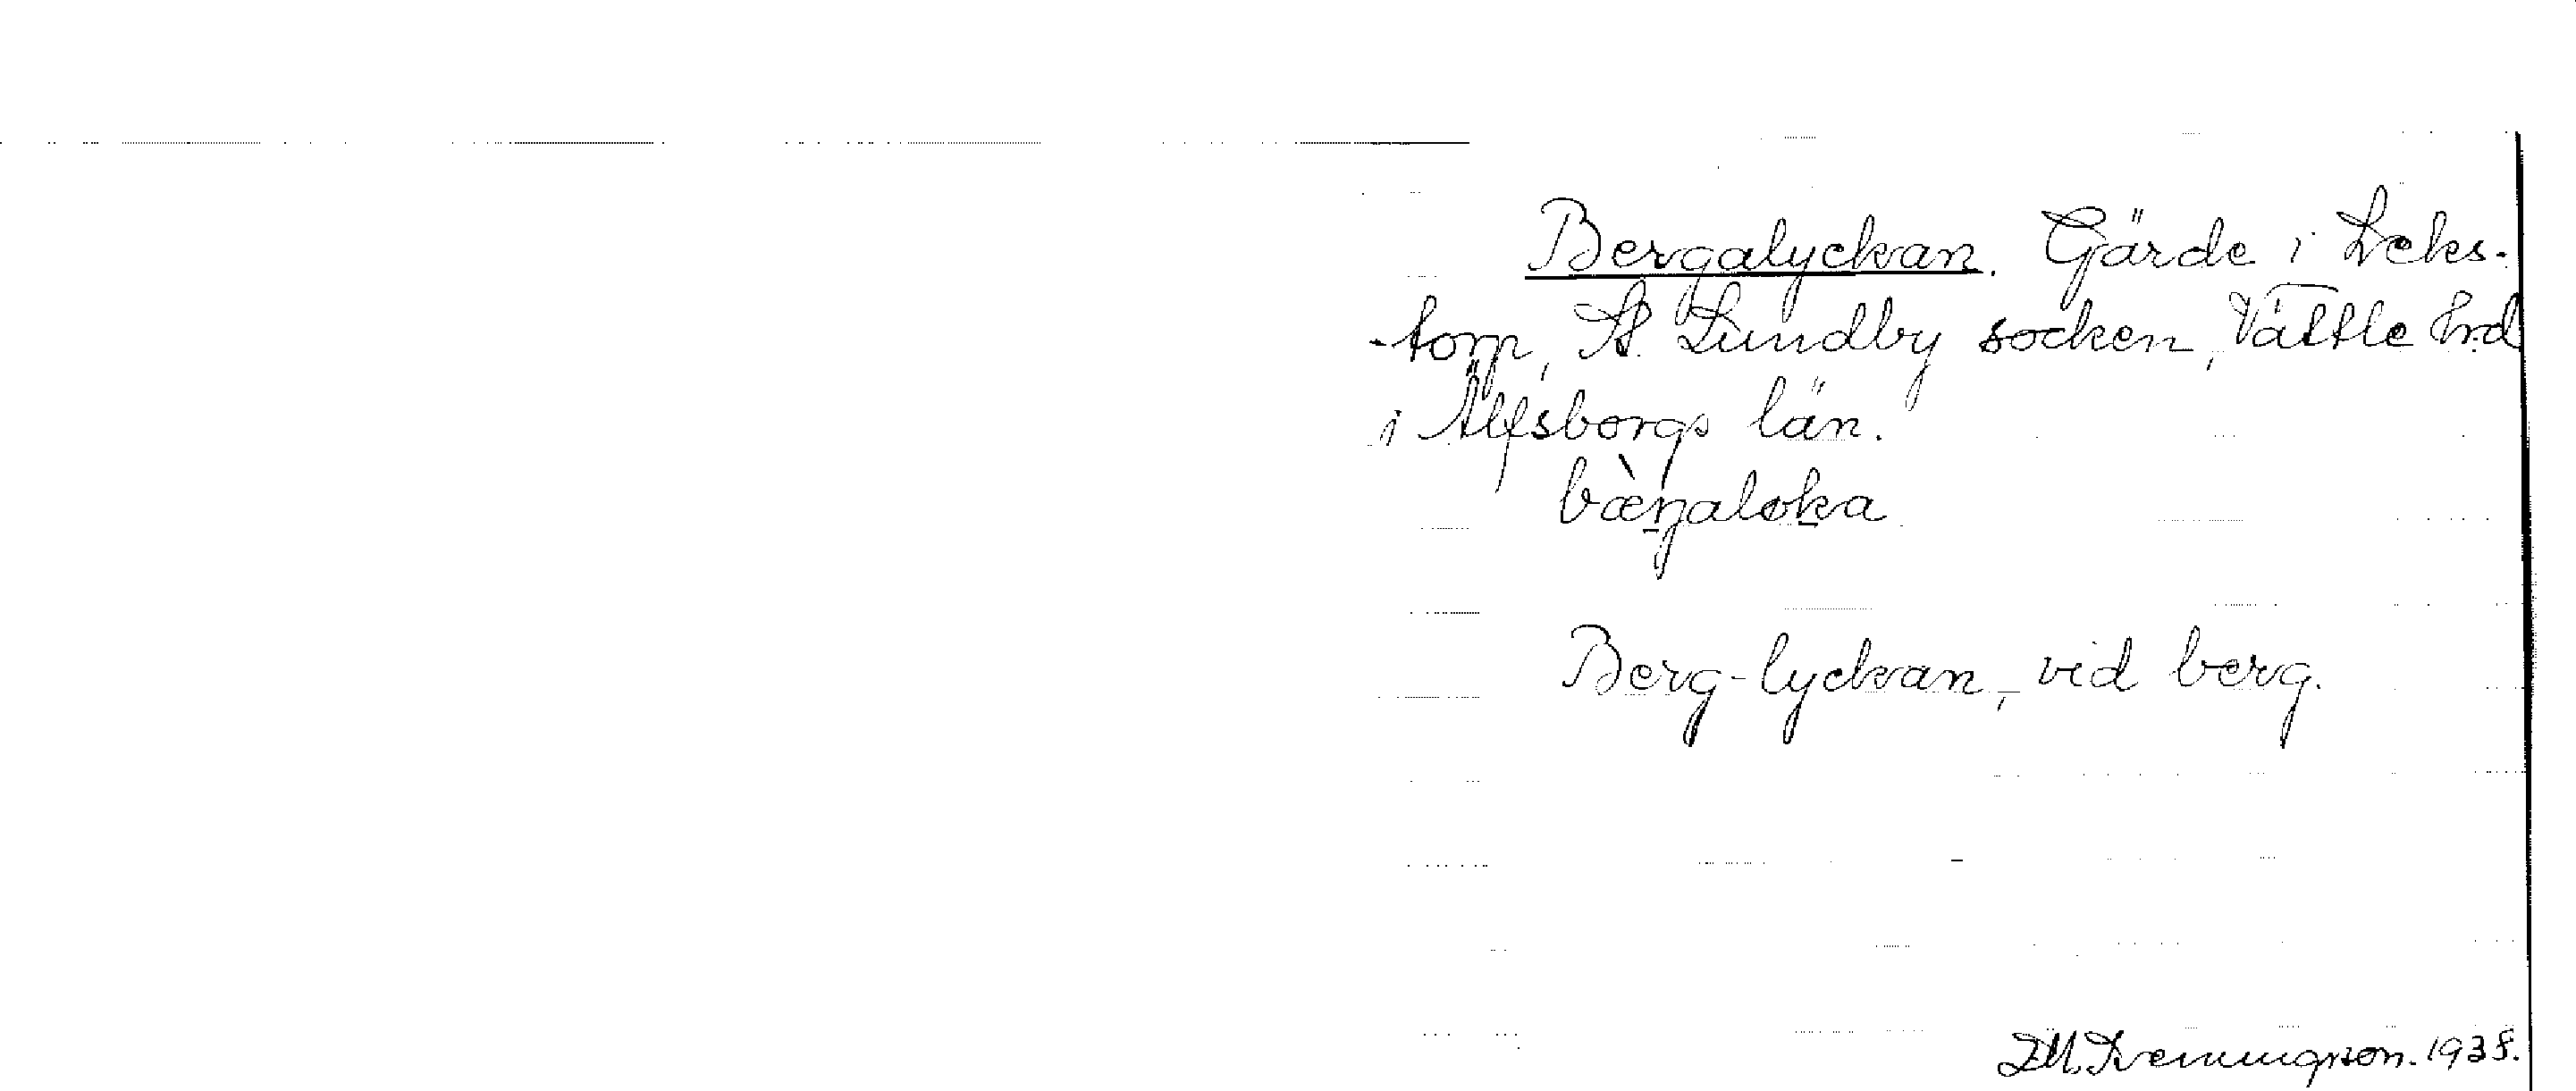 Bergalyckan. Gärde i Leks-
-torp, St. Lundby socken, Vättle hrd
i Älfsborgs län.
bæ̀ŋaloka
Berg-lyckan, vid berg.
1938.